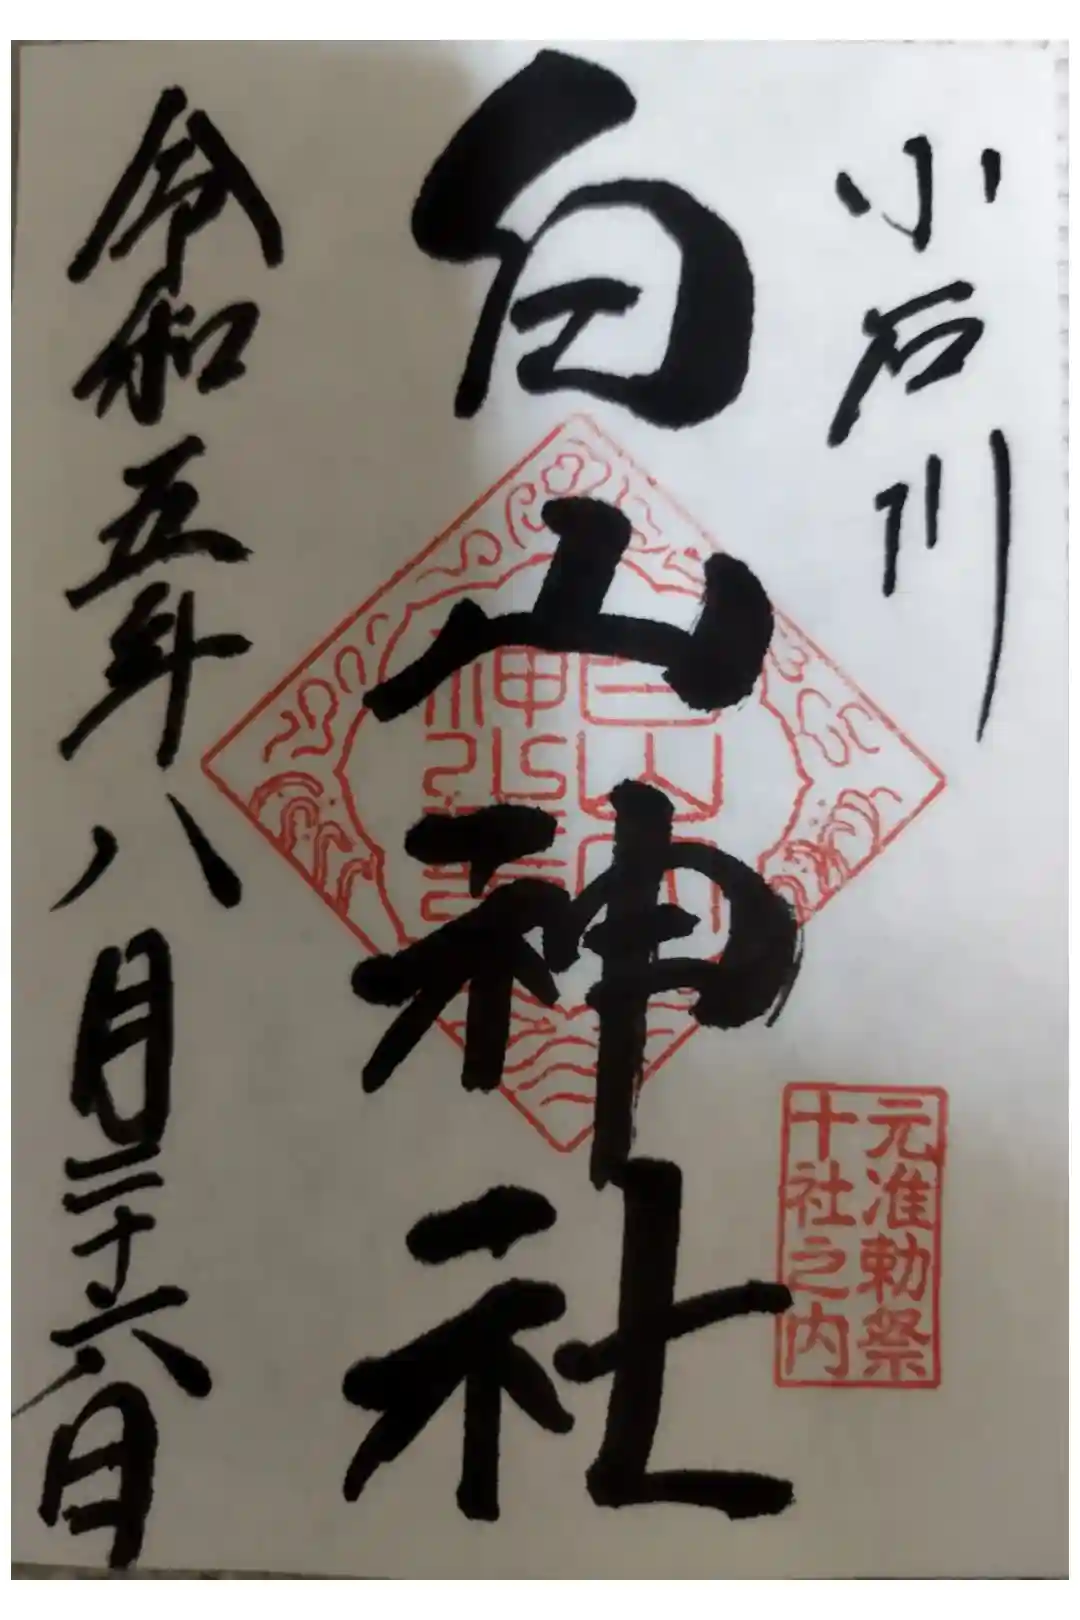 小石川
元准勅祭
十社之内
白山神社
令和五年八月二十六日